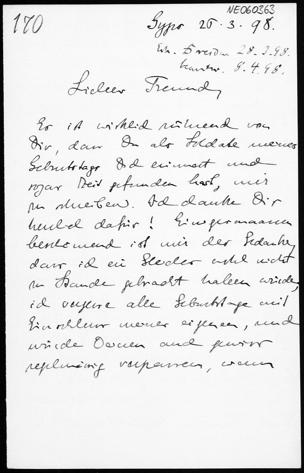 170
NE060363
Sypo 25.3.98.
Erh. Dresden 28.3.98.
beantw. 8.4.98.
Lieber Freund,
Es ist wirklich rührend von
Dir, dass Du als Soldat meines
Geburtstags Dich erinnert und
sogar Zeit gefunden hast, mir
zu schreiben. Ich danke Dir
herzlich dafür! Einigermaassen
beschämend ist mir der Gedanke,
dass ich ein Gleiches wohl nicht
zu Stande gebracht haben würde,
ich vergesse alle Geburtstage mit
Einschluss meines eigenen, und
würde Deinen auch gewiss
regelmässig verpassen, wenn